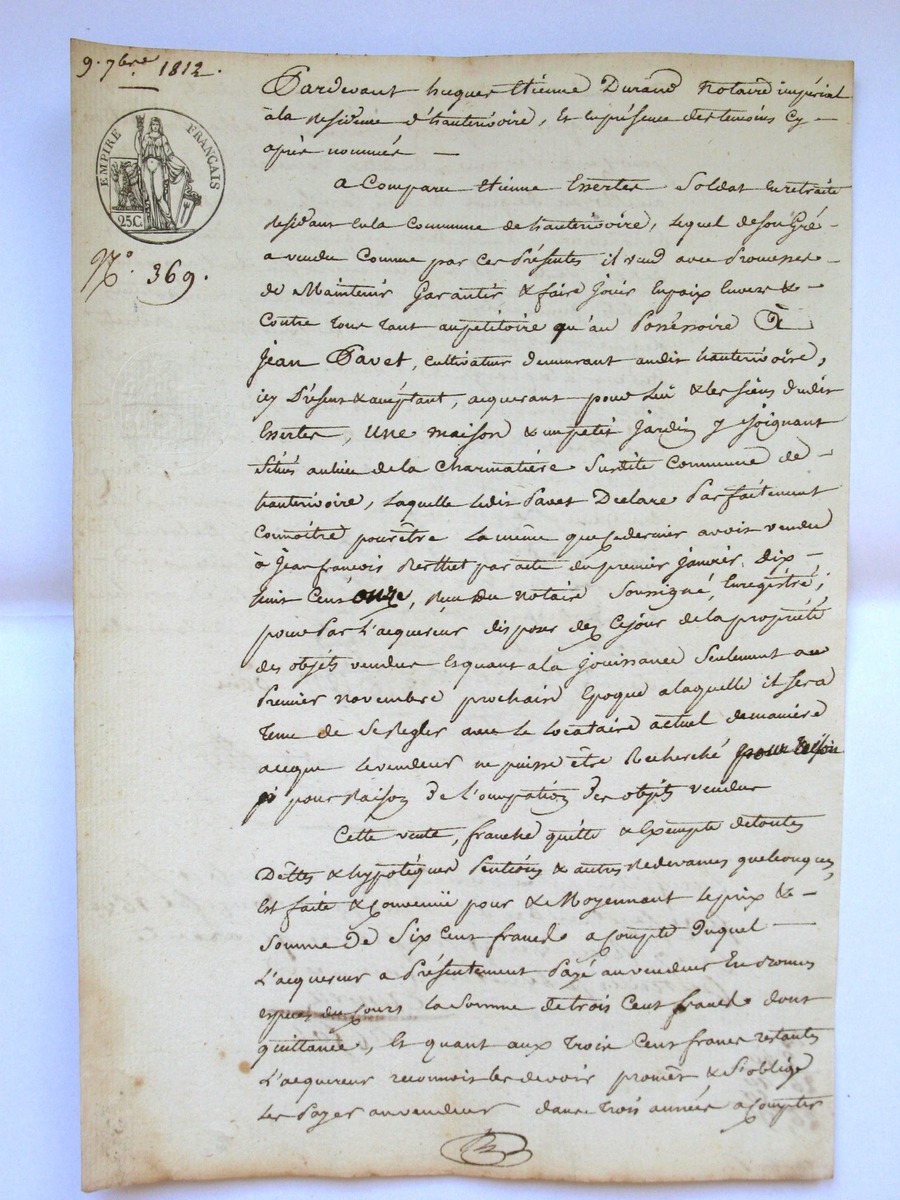 9. 7bre 1812.
EMPIRE FRANÇAIS
25C.
N.° 369.
Pardevant Jacques Etiénne Durand Notaire impérial
à la Residence d'hauterivoire, Et en présence des temoins Cy-
après nommés —
a Comparu Etienne Essertes Soldat En retraite
Residant En la Commune de hauterivoire, lequel de son Gré-
a vendu Comme par ces Présentes il vend avec Promesse-
de Maintenir Garantir & faire Jouir En paix Envers &-
Contre tous tant au petitoire qu'au Posséssoire À
Jean Pavet, cultivateur demeurant audit hauterivoire,
icy Présent & acceptant, acquerant pour lui & les siens dudit
Essertes, Une maison & un petit Jardin y Joignant
Situés au lieu de la Charmatiére Susdite Commune de-
hauterivoire, laquelle ledit Pavet Declare Parfaitement
Connoître pour être la même que ce dernier avoit vendu
à Jean francois Berthet par acte du premier janvier Dix-
huit Cent onze, Reçu Du Notaire Soussigné, Enregistré;
pour Par L'acquereur disposer dez Cejour de la propriété
des objets vendus Et quant a la Jouissance Seulement au
Premier novembre prochain Epoque a laquelle il sera
Tenu de Se Regler avec Le Locataire actuel de maniére
aceque le vendeur ne puisse être Recherché pour raison
pour Raison De L'occupation des objets vendus
Cette vente, franche quitte & Exempte de toutes
Dettes & hypotéques Pentions & autres Redevances quelconques,
Est faite & Convenuë pour & Moyennant le prix &-
Somme de Six Cent francs a Compte Duquel —
L'acquereur a Présentement Payé au vendeur En
especes du Cours la Somme de trois Cent francs dont
quittance, Et quant aux Trois Cent francs restants
L'acquereur reconnois les devoir promet & s'oblige
Les Payer au vendeur dans trois années a Compter